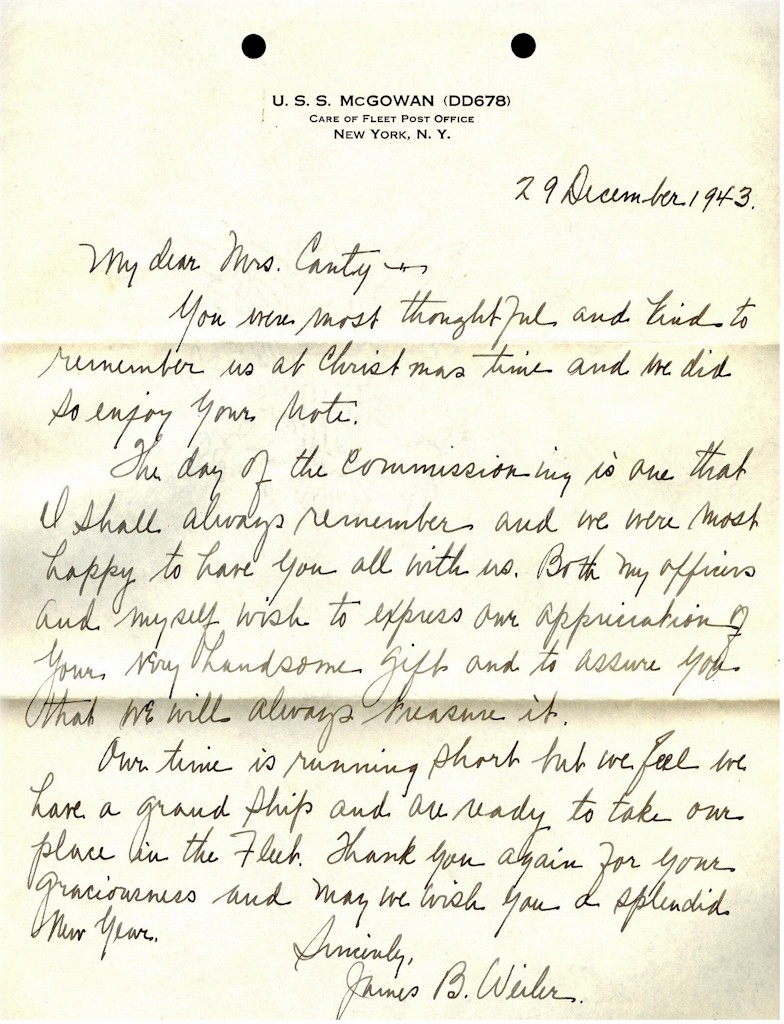 U. S. S. McGOWAN (DD678)
CARE OF FLEET POST OFFICE
NEW YORK, N. Y.
29 December 1943.
My dear Mrs. Canty —
You were most thoughtful and kind to
remember us at Christmas time and we did
so enjoy your note.
The day of the commissioning is one that
I shall always remember and we were most
happy to have you all with us. Both my officers
and myself wish to express our appreciation of
your very handsome gift and to assure you
that we will always treasure it.
Our time is running short but we feel we
have a grand ship and are ready to take our
place in the Fleet. Thank you again for your
graciousness and may we wish you a splendid
New Year.
Sincerely,
James B. Weiler.